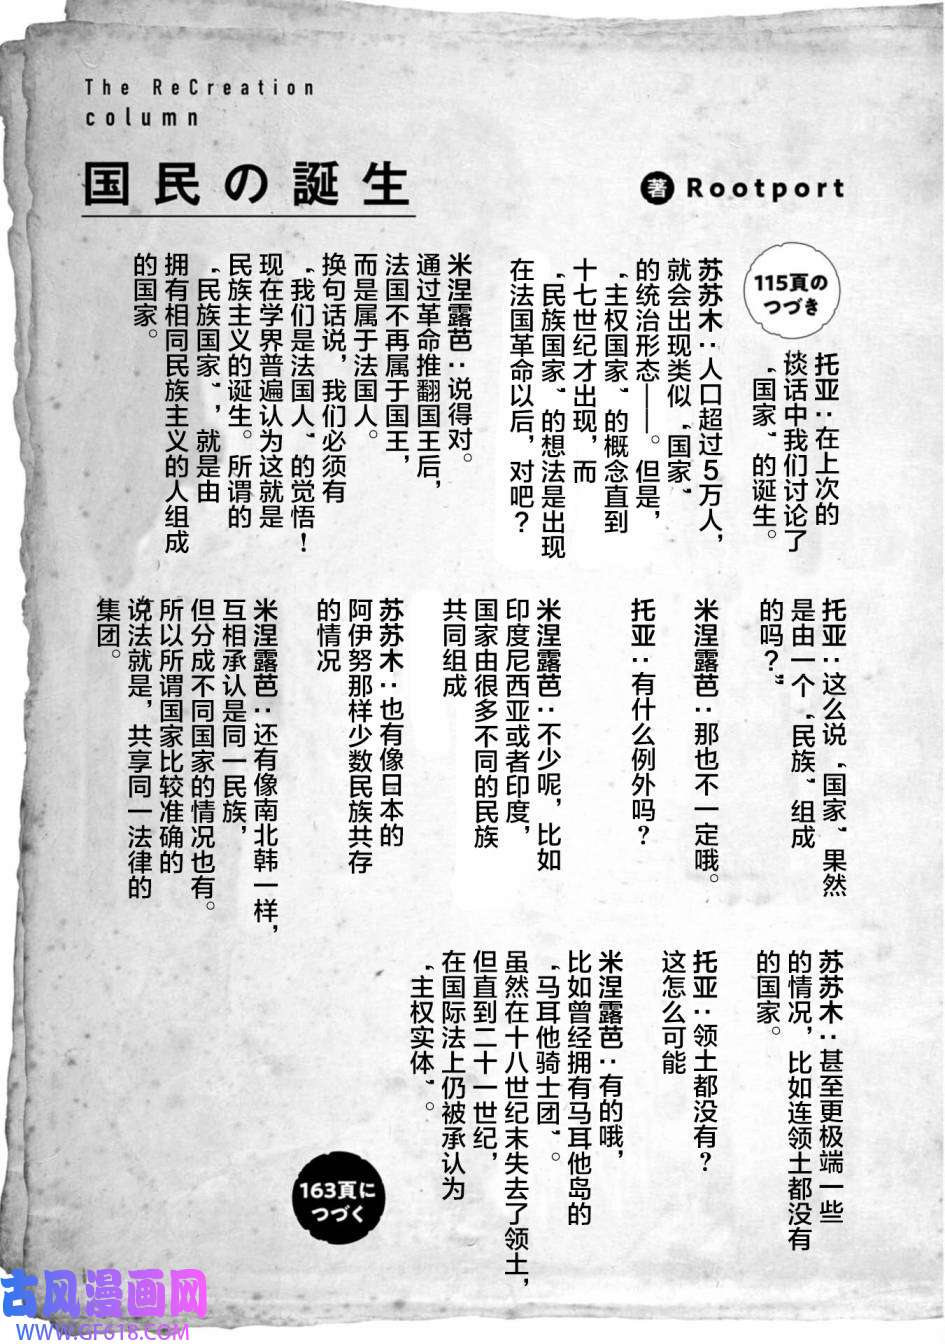 The ReCreation
column
国民の誕生
著 Rootport
115頁の
つづき
托亚：在上次的
谈话中我们讨论了
“国家”的诞生。
苏苏木：人口超过5万人，
就会出现类似“国家”
的统治形态——。但是，
“主权国家”的概念直到
十七世纪才出现，而
“民族国家”的想法是出现
在法国革命以后，对吧？
米涅露芭：说得对。
通过革命推翻国王后，
法国不再属于国王，
而是属于法国人。
换句话说，我们必须有
“我们是法国人”的觉悟！
现在学界普遍认为这就是
民族主义的诞生。所谓的
“民族国家”，就是由
拥有相同民族主义的人组成
的国家。
托亚：这么说“国家”果然
是由一个“民族”组成
的吗？”
米涅露芭：那也不一定哦。
托亚：有什么例外吗？
米涅露芭：不少呢，比如
印度尼西亚或者印度，
国家由很多不同的民族
共同组成
苏苏木：也有像日本的
阿伊努那样少数民族共存
的情况
米涅露芭：还有像南北韩一样，
互相承认是同一民族，
但分成不同国家的情况也有。
所以所谓国家比较准确的
说法就是，共享同一法律的
集团。
苏苏木：甚至更极端一些
的情况，比如连领土都没有
的国家。
托亚：领土都没有？
这怎么可能
米涅露芭：有的哦，
比如曾经拥有马耳他岛的
“马耳他骑士团”。
虽然在十八世纪末失去了领土，
但直到二十一世纪，
在国际法上仍被承认为
“主权实体”。
163頁に
つづく
古风漫画网
WWW.GF618.COM